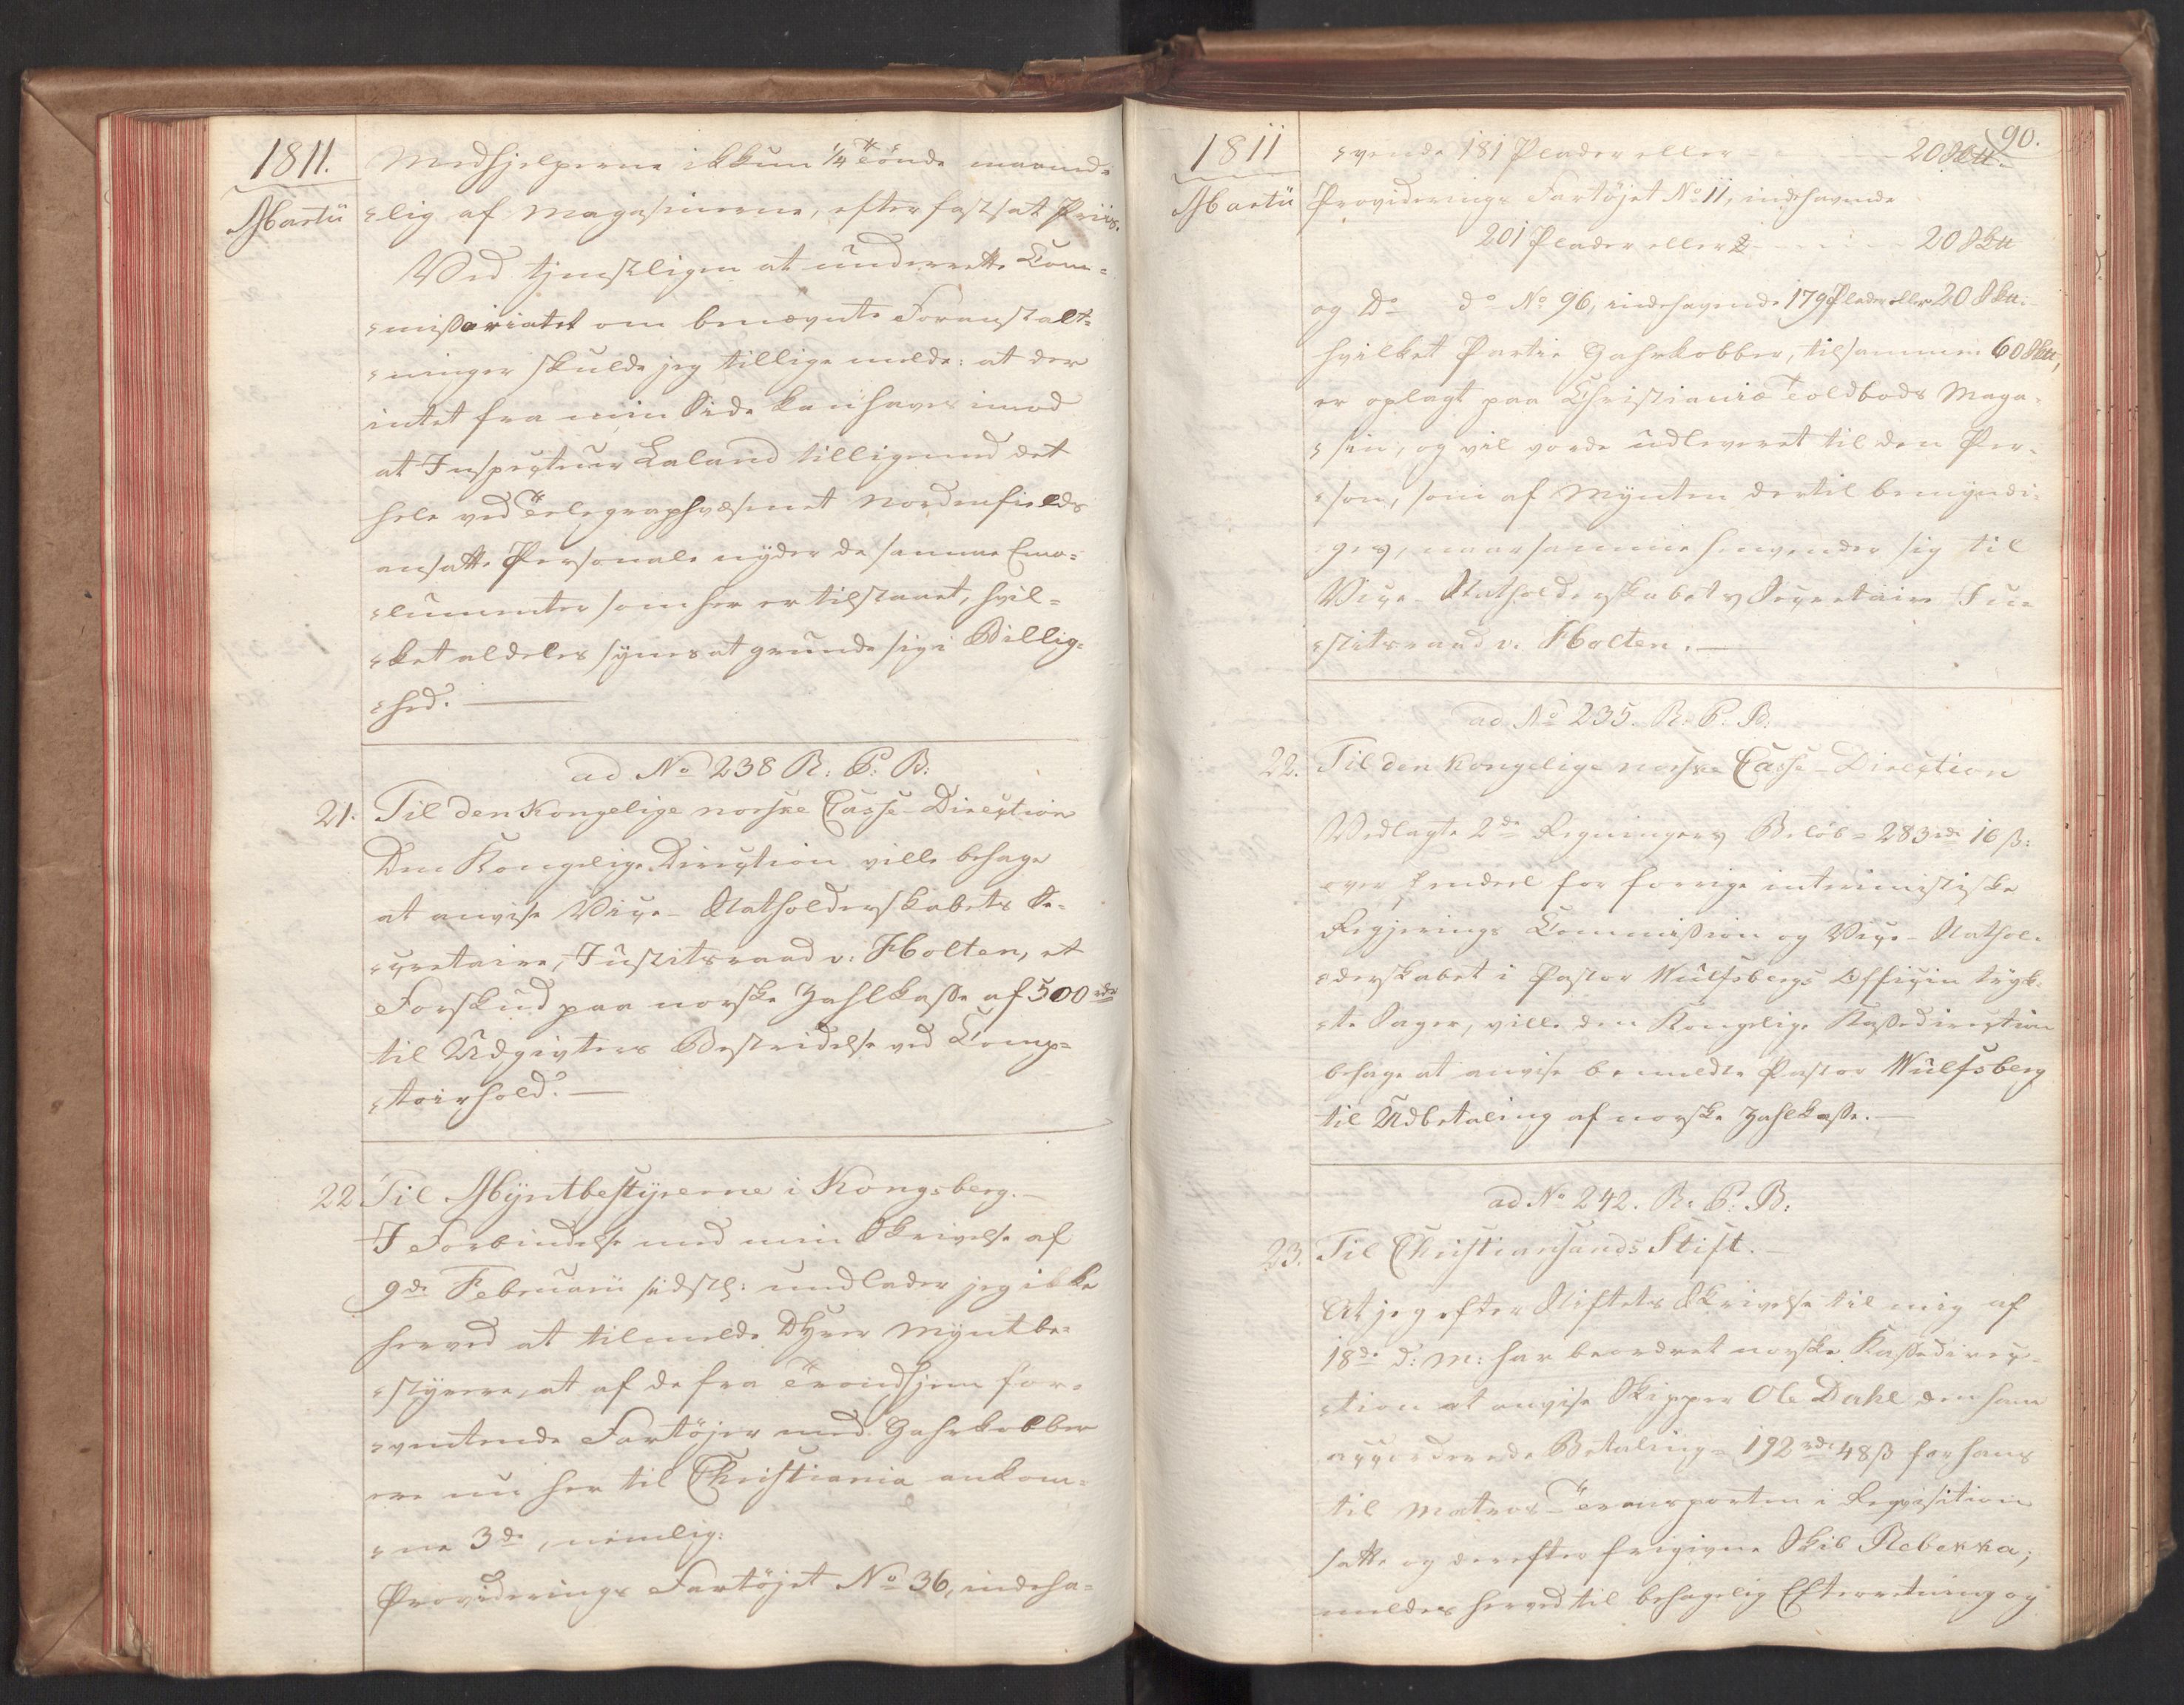 1811.
Martii
Medhjelperne ikkun 1/4 Tönde maaned=
=lig af Magasinerne, efter fastsat Priis.
Ved tjenstligen at underrette Com=
=missariatet om benævnte Foranstalt=
=ninger skulde jeg tillige melde: at der
intet fra min Side kan haves imod
at Inspecteur Laland tilligemed det
hele ved Telegraphvæsenet Nordenfields
ansatte Personale nyder de samme Emo=
=lumenter som her er tilstaaet, hvil=
=ket aldeles synes at grunde sig i Billig=
=hed.
ad No 238 R: P: B:
21. Til den Kongelige norske Casse-Direction
Den Kongelige Direction ville behage
at anvise Vice-Statholderskabets Se=
=cretaire, Justitsraad v: Holten, et
Forskud paa norske Zahlkasse af 500 rdr
til Udgivters Bestridelse ved Comp=
=toirhold.
22 Til Myntbestyrerne i Kongsberg.
I Forbindelse med min Skrivelse af
9de Februarii sidstl: undlader jeg ikke
herved at tilmelde DHrer Myntbe=
=styrere, at af de fra Trondhjem for=
=ventende Fartöjer med Gahrkobber
ere nu her til Christiania ankom=
=ne 3de, nemlig:
Providerings Fartöjet No 36, indeha=
90.
1811
Martii
=vende 181 Plader eller 20 Sk℔.
Providerings Fartöjet No 11, indehavende
201 Plader eller 20 Sk℔
og Do do No 96, indehavende 179 Plader eller 20 Sk℔.
hvilket Partie Gahrkobber, tilsammen 60 Sk℔,
er oplagt paa Christianiæ Toldbods Maga=
=sin, og vil vorde udleveret til den Per=
=son, som af Mynten dertil bemyndi=
ges, naar samme henvender sig til
Vice-Statholderskabets Secretaire Ju=
=stitsraad v. Holten.
ad No 235. R. P. B:
22. Til den kongelige norske Casse-Direction
Vedlagte 2de Regningers Belöb = 283 rdr 16 ß:
over endeel for forrige interimistiske
Regjerings Commission og Vice-Stathol=
=derskabet i Pastor Wulfsbergs Officin tryk=
=te Sager, ville den Kongelige Kassedirection
behage at anvise bemeldte Pastor Wulfsberg
til Udbetaling af norske Zahlkasse.
ad No 242. R: P: B:
23. Til Christiansands Stift.
At jeg efter Stiftets Skrivelse til mig af
18de d: M: har beordret norske Kassedirec=
=tion at anvise Skipper Ole Dahl den ham
accorderede Betaling = 192 rdr 48 ß for hans
til Matros-Transporten i Reqvisition
satte og derefter frigivne Skib Rebekka;
meldes herved til behagelig Efterretning og